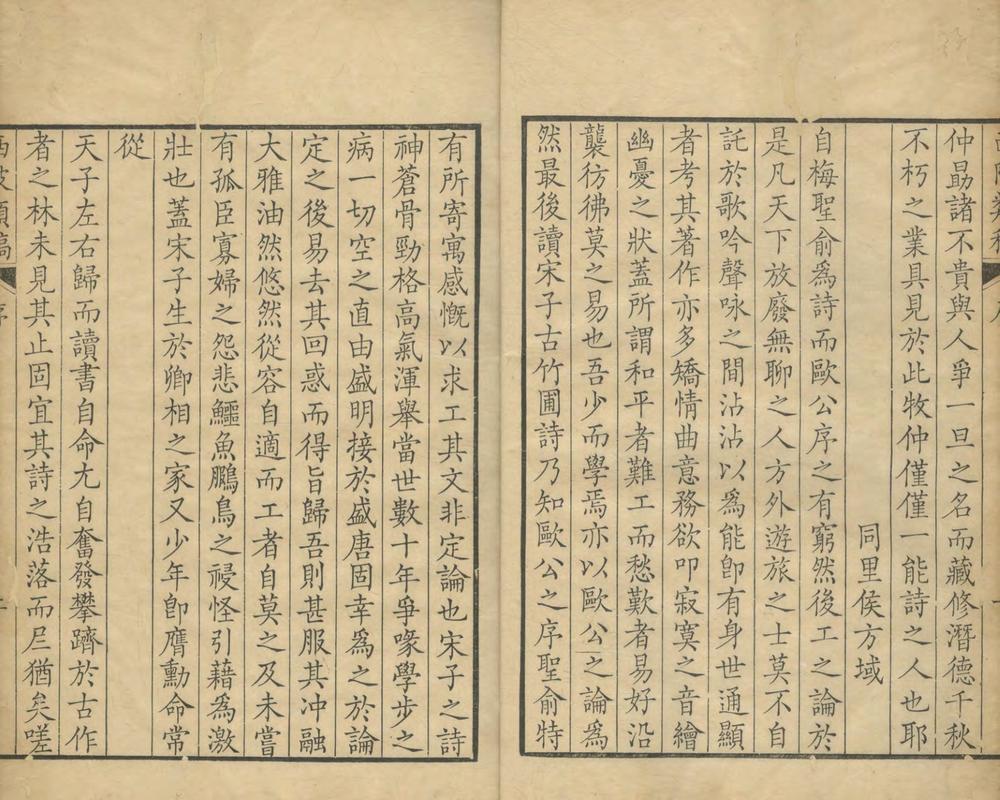 仲勗諸不貴與人爭一旦之名而藏修潛德千秋
不朽之業具見於此牧仲僅僅一能詩之人也耶
同里侯方域
自梅聖俞為詩而歐公序之有窮然後工之論於
是凡天下放廢無聊之人方外遊旅之士莫不自
託於歌吟聲咏之間沾沾以為能卽有身世通顯
者考其著作亦多矯情曲意務欲叩寂寞之音繪
幽憂之狀蓋所謂和平者難工而愁歎者易好沿
襲彷彿莫之易也吾少而學焉亦以歐公之論為
然最後讀宋子古竹圃詩乃知歐公之序聖俞特
有所寄寓感慨以求工其文非定論也宋子之詩
神蒼骨勁格高氣渾舉當世數十年爭喙學步之
病一切空之直由盛明接於盛唐固幸為之於論
定之後易去其回惑而得旨歸吾則甚服其冲融
大雅油然悠然從容自適而工者自莫之及未嘗
有孤臣寡婦之怨悲鱷魚鵩鳥之祲怪引藉為激
壯也蓋宋子生於卿相之家又少年卽膺勳命常
從
天子左右歸而讀書自命尤自奮發攀躋於古作
者之林未見其止固宜其詩之浩落而𡰱猶矣嗟
西陂類稿
序